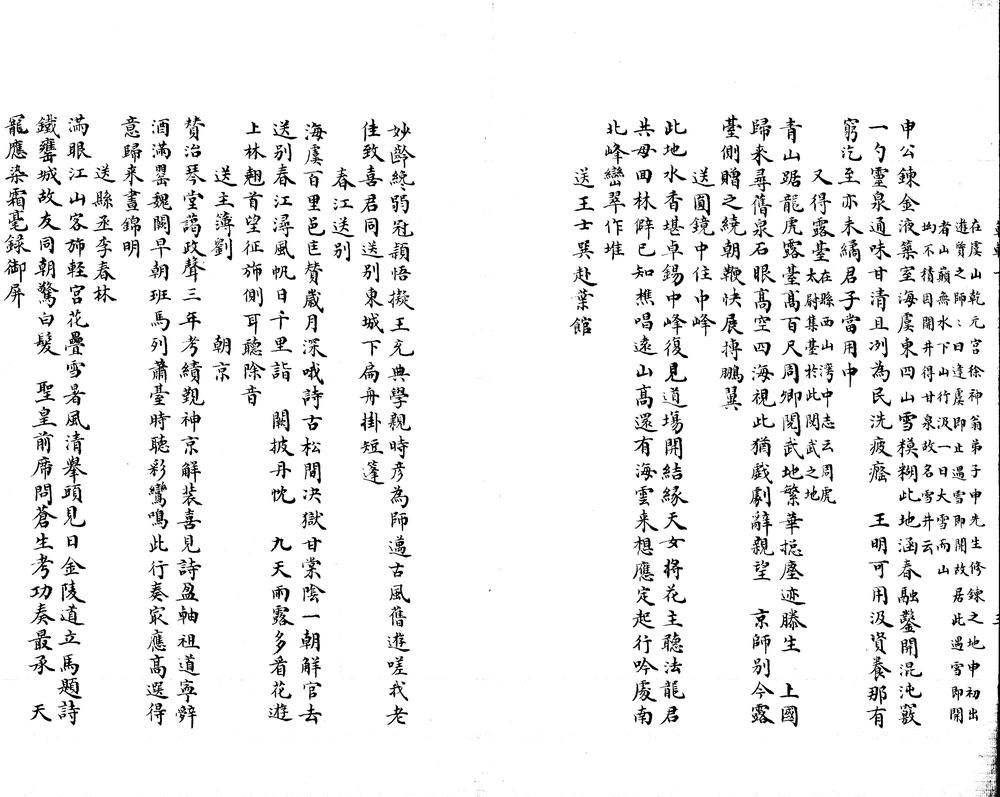 在虞山乾元宮徐神翁弟子申先生修鍊之地申初出
遊質之師師曰逢虞即止遇雪即開故居此遇雪即開
者山巔無水下山行汲一日大雪而山
凹不積因開井得甘泉故名雪井云
申公鍊金液築室海虞東四山雪模糊此地涵春融鑿開混沌竅
一勺靈泉通味甘清且冽為民洗疲癃 王明可用汲資養那有
窮汔至亦未繘君子當用中
又得露臺在縣西山灣中志云周虎
太尉集臺於此閱武之地
青山踞龍虎露臺高百尺周卿閱武地繁華揔塵迹勝生 上國
歸來尋舊泉石眼高空四海視此猶戲劇辭親望 京師別今露
臺側贈之繞朝鞭快展摶鵬翼
送圓鏡中住中峰
此地水香堪卓錫中峰復見道場開結緣天女將花主聽法龍君
共母回林僻已知樵唱遠山高還有海雲来想應定起行吟處南
北峰巒翠作堆
送王士巽赴葉館
妙齡纔弱冠頴悟擬王充典學親時彥為師邁古風舊遊嗟我老
佳致喜君同送別東城下扁舟掛短篷
春江送別
海虞百里邑匡贊歲月深哦詩古松間决獄甘棠陰一朝解官去
送別春江潯風帆日千里詣 闕披丹忱 九天雨露多看花遊
上林翹首望征旆側耳聽除音
送主簿劉 朝京
贊治琴堂藹政聲三年考績覲神京解裝喜見詩盈軸祖道寧辭
酒滿罌魏闕早朝班馬列蕭臺時聽彩鸞鳴此行奏寂應高選得
意歸来晝錦明
送縣丞李春林
滿眼江山客旆輕宮花疊雪暑風清舉頭見日金陵道立馬題詩
鐵甕城故友同朝驚白髮 聖皇前席問蒼生考功奏最承 天
寵應染霜毫録御屏